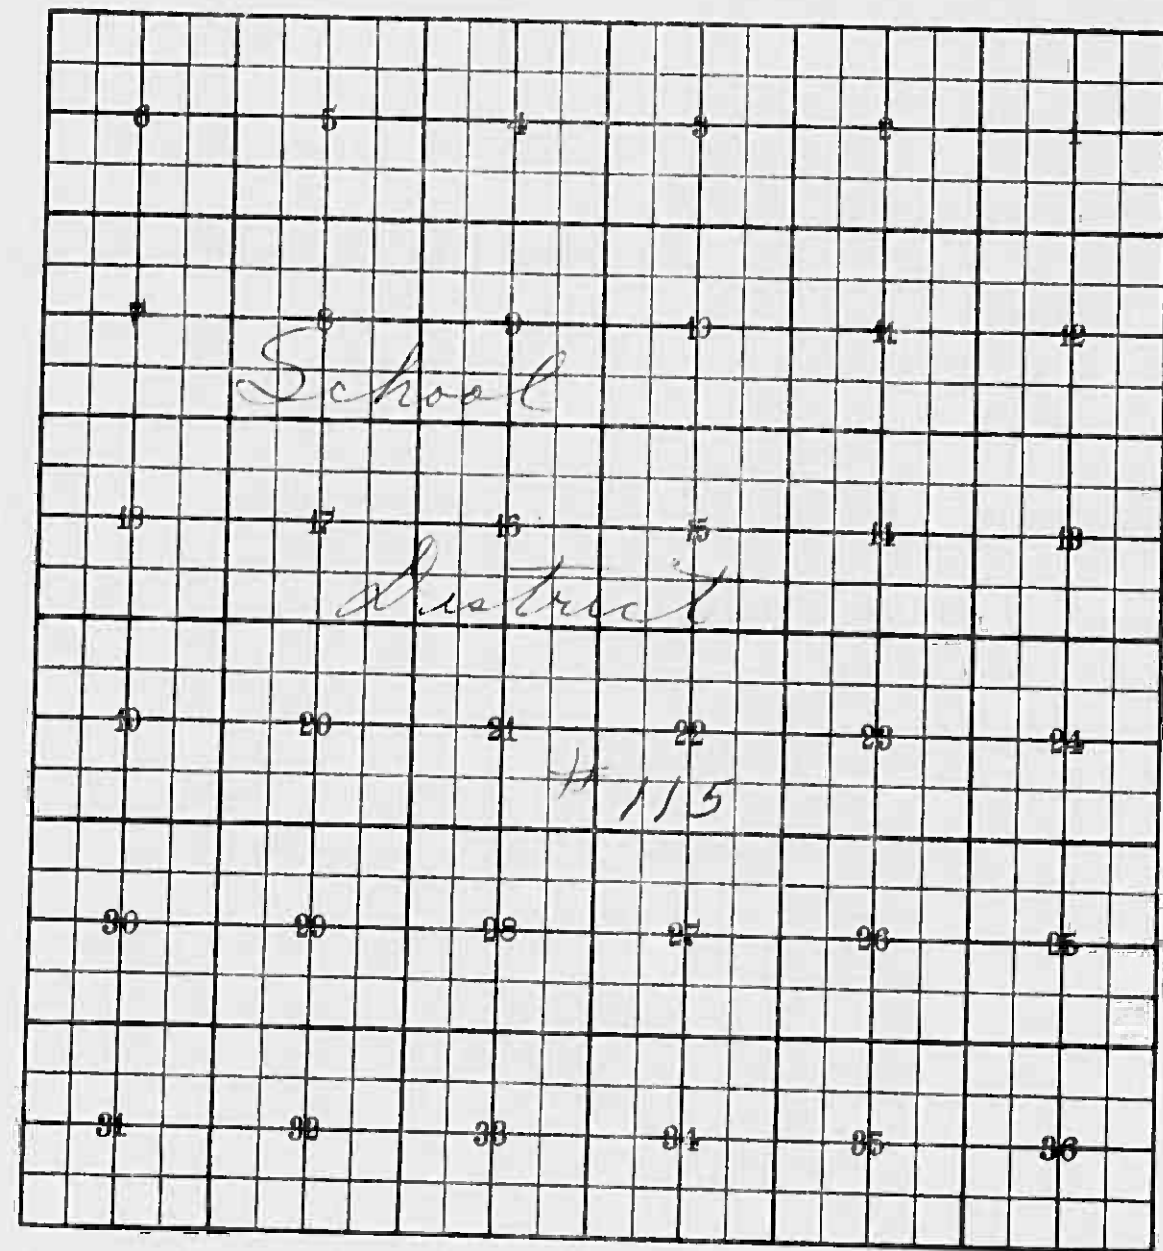 6 5 4 3 2 1
7 8 9 10 11 12
School
18 17 16 15 14 13
District
19 20 21 22 23 24
# 115
30 29 28 27 26 25
31 32 33 34 35 36